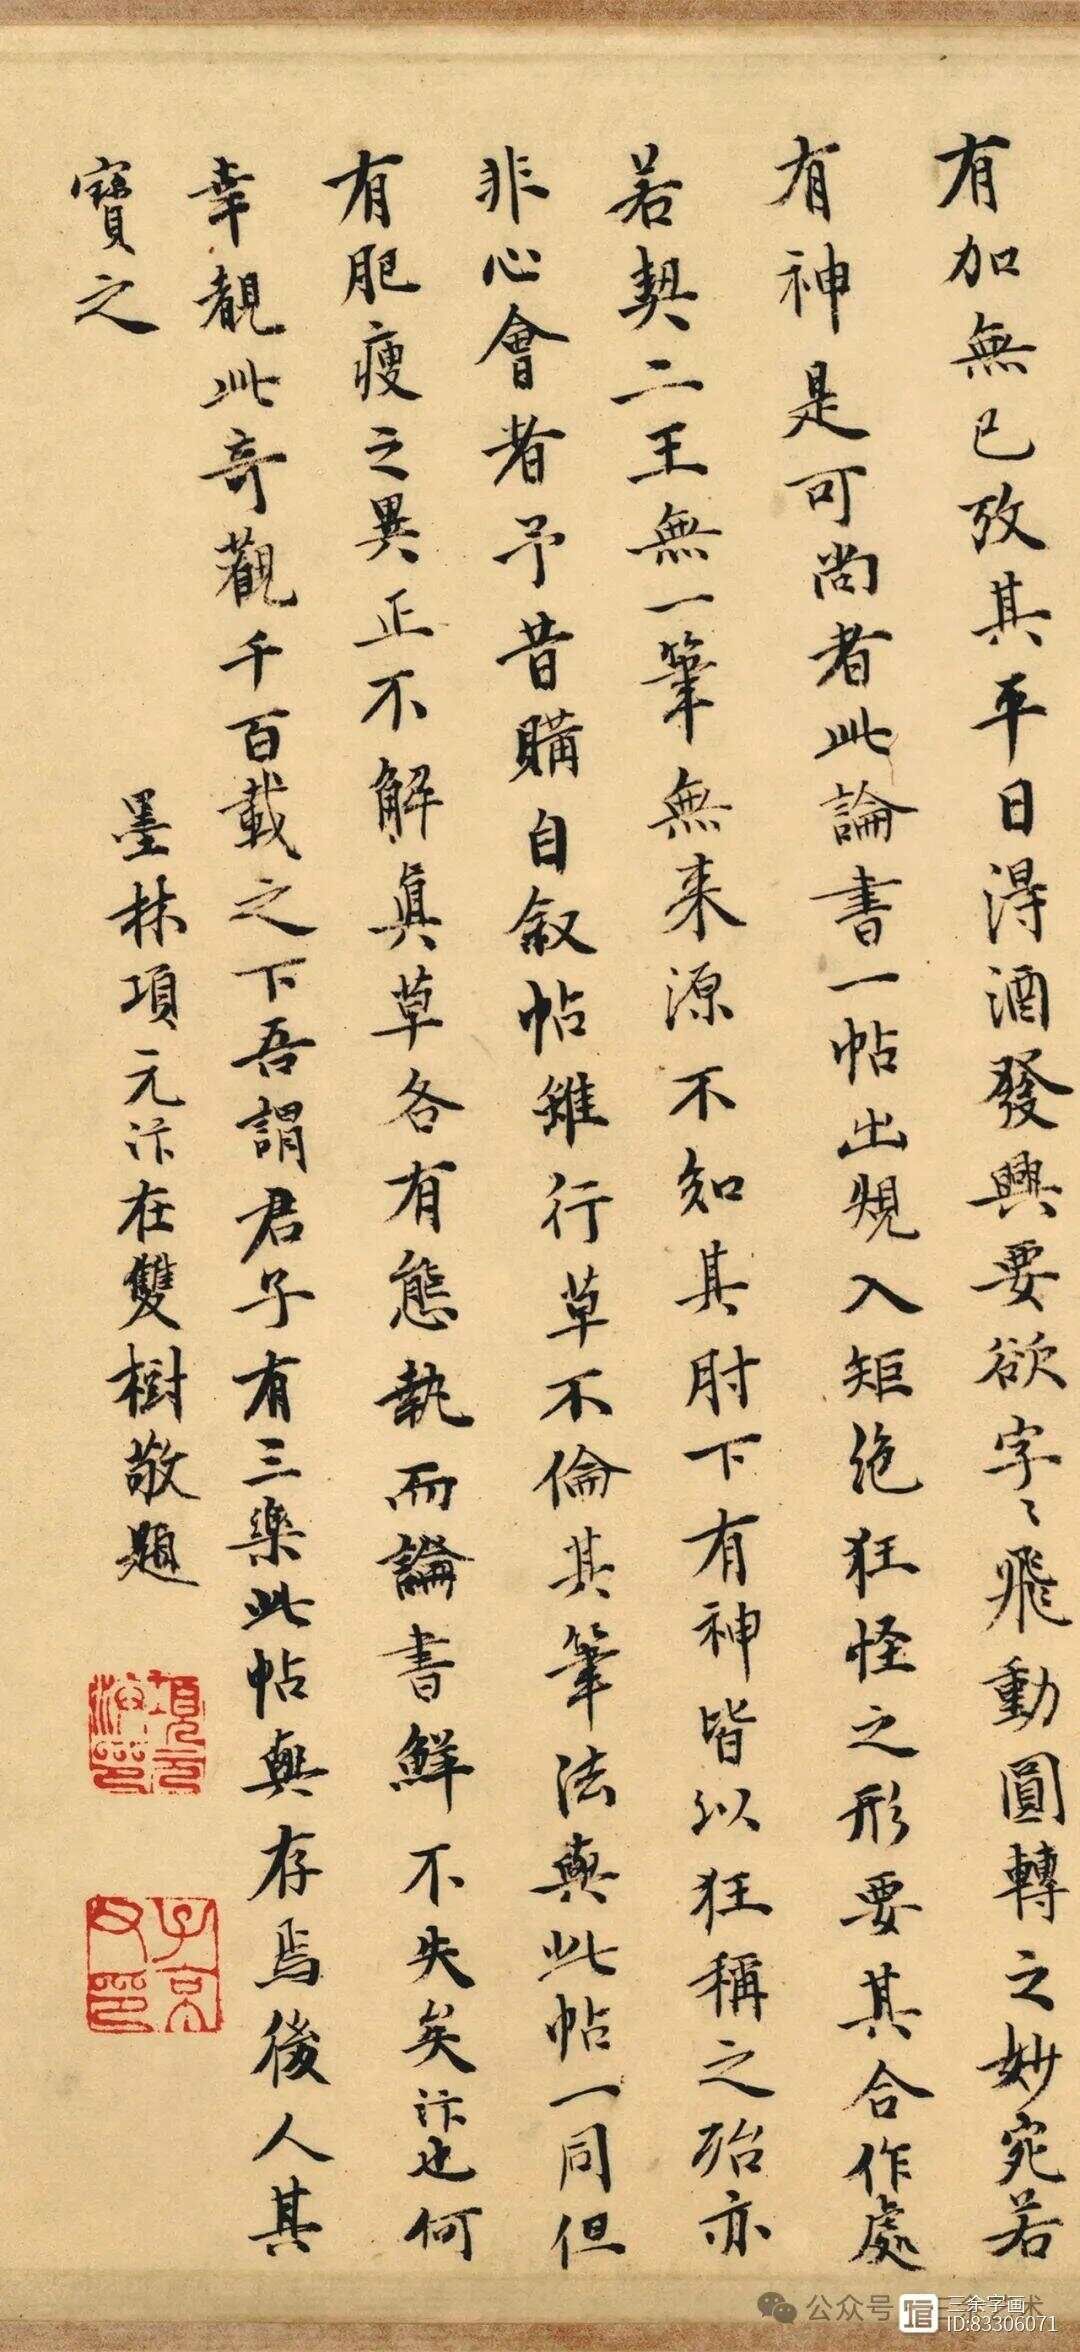 有加無已攷其平日得酒發興要欲字〻飛動圓轉之妙宛若
有神是可尚者此論書一帖出規入矩絶狂怪之形要其合作處
若契二王無一筆無来源不知其肘下有神皆以狂稱之殆亦
非心會者予昔購自叙帖雖行草不倫其筆法與此帖一同但
有肥瘦之異正不解真草各有態執而論書鮮不失矣汴也何
幸覩此奇觀千百載之下吾謂君子有三樂此帖與存焉後人其
寶之
墨林項元汴在雙樹敬題
項元汴印
子京父印
公众号
三余字画
ID:83306071